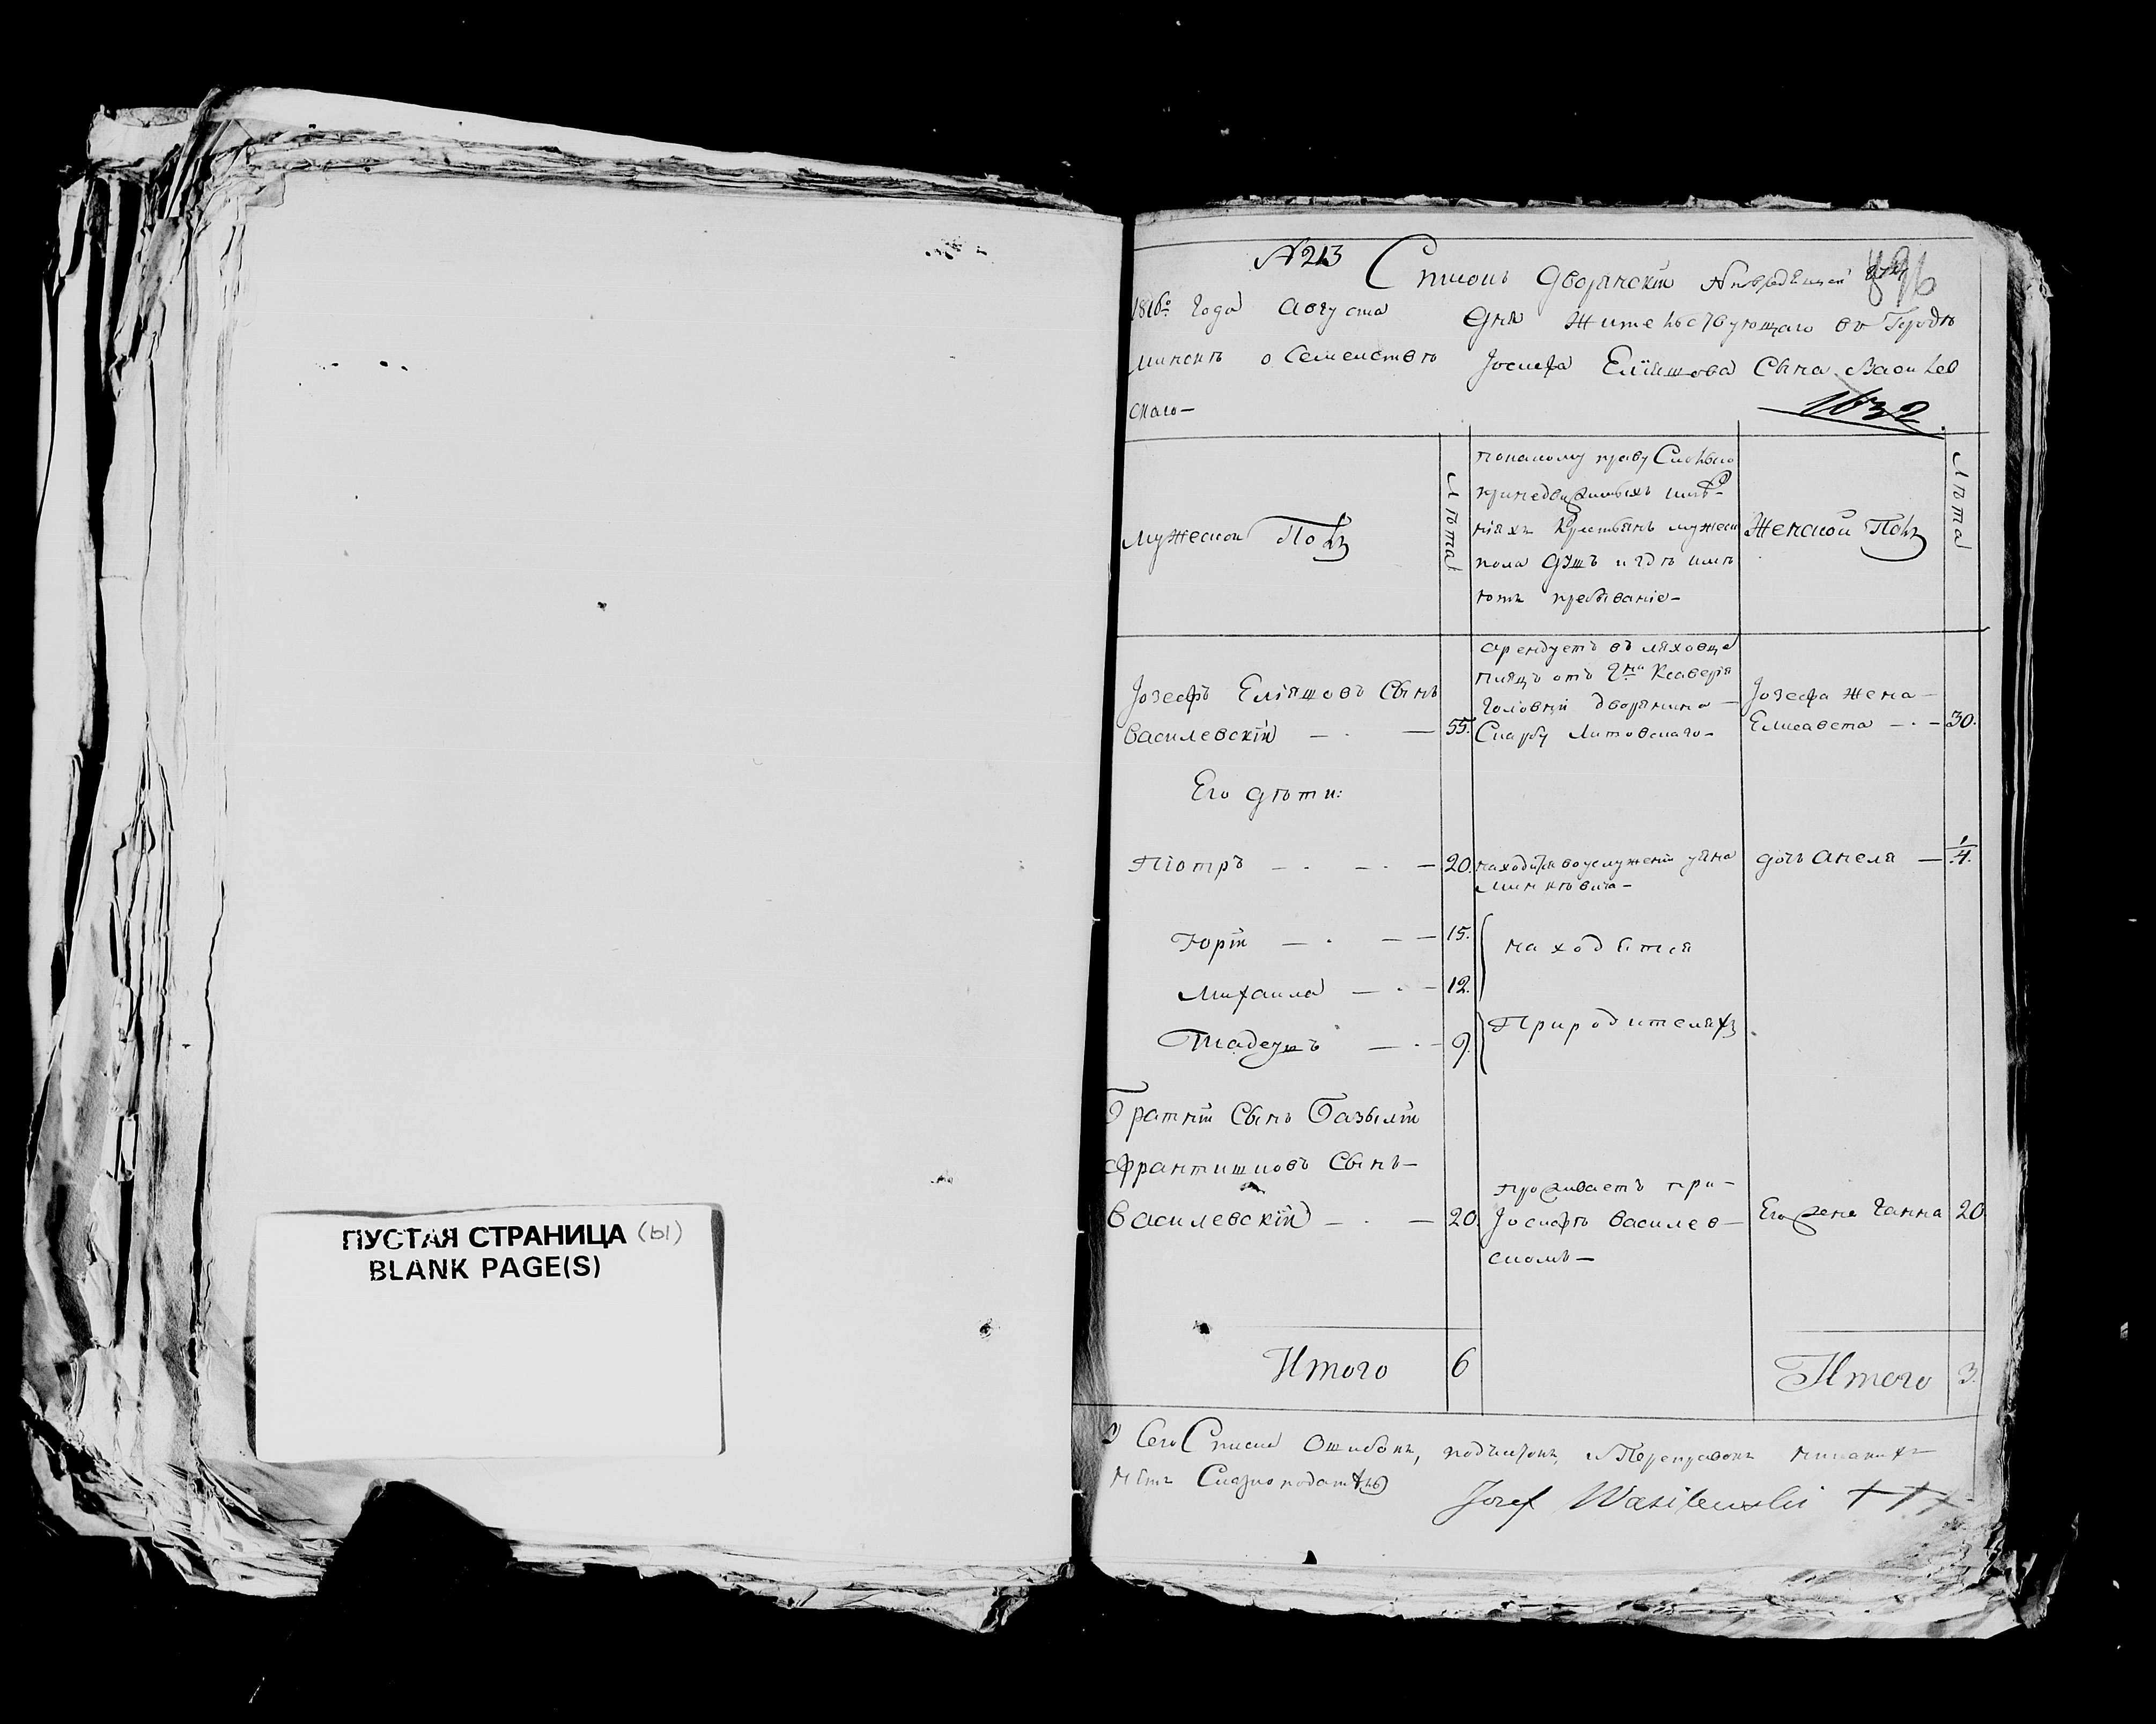 ПУСТАЯ СТРАНИЦА (ы)
BLANK PAGE(S)
№ 213 Списокъ Дворянскій
1816го Года Августа Дня Жительствующаго въ Городѣ
Минскѣ о Семействѣ Іосифа Еліяшова Сына Василев
скаго—
1632
Мужеской Полъ
Лѣта
по какому праву Сколько
при недвижимыхъ имѣ-
ніяхъ Крестьянъ мужеск
пола Душъ и гдѣ имѣ
ютъ пребываніе—
Женской Полъ
Лѣта
Іозефъ Еліяшовъ Сынъ
Василевскій — . — 55.
арендуетъ въ Ляховце
пляцъ отъ Гна Ксаверія
Головни дворянина —
Скарбу Литовскаго—
Іозефа жена —
Елисавета — . — 30.
Его дѣти:
Піотръ — . — . — 20.
находится во услуженіи у Яна
Минкѣвича—
дочь Анеля — 1/4.
Юрій — . — — 15.
Михаила — . — 12.
Тадеушъ — . — 9.
находятся
При родителяхъ
Братній Сынъ Базылій
Франтишковъ Сынъ—
Василевскій — . — 20.
проживаетъ при—
Іосифѣ Василев—
скомъ—
Его жена Ганна 20
Итого 6
Итого 3.
Сего Списка Ошибокъ, подчистокъ, и Переправокъ никакихъ
нѣтъ
Jozef Wasilewski +++